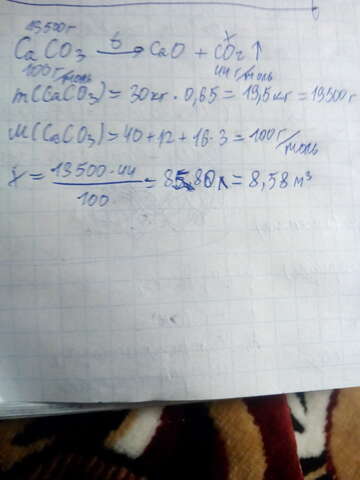 19500г x
CaCO₃ —t→ CaO + CO₂↑
100г/моль 44 г/моль
m(CaCO₃) = 30кг · 0,65 = 19,5кг = 19500г
M(CaCO₃) = 40+12+16·3 = 100г/моль
x = 19500·44/100 = 8580л = 8,58 м³